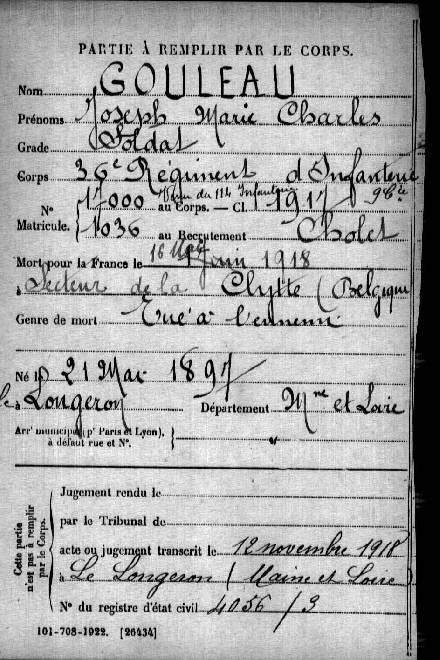 PARTIE À REMPLIR PAR LE CORPS.
Nom GOULEAU
Prénoms Joseph Marie Charles
Grade Soldat
Corps 36e Régiment d'Infanterie
N° 17000 au Corps. — Cl. 1917 9e Cie
Venu du 114 Infanterie
Matricule. 1036 au Recrutement Cholet
Mort pour la France le 16 Mai 1918
à Secteur de la Clytte (Belgique
Genre de mort Tué à l'ennemi
Né le 21 Mai 1897
à Le Longeron Département Mne et Loire
Arrt municipal (pr Paris et Lyon),
à défaut rue et N°.
Cette partie n'est pas à remplir par le Corps.
Jugement rendu le
par le Tribunal de
acte ou jugement transcrit le 12 novembre 1918
à Le Longeron (Maine et Loire)
N° du registre d'état civil 4056/3
101-708-1922. [26434]